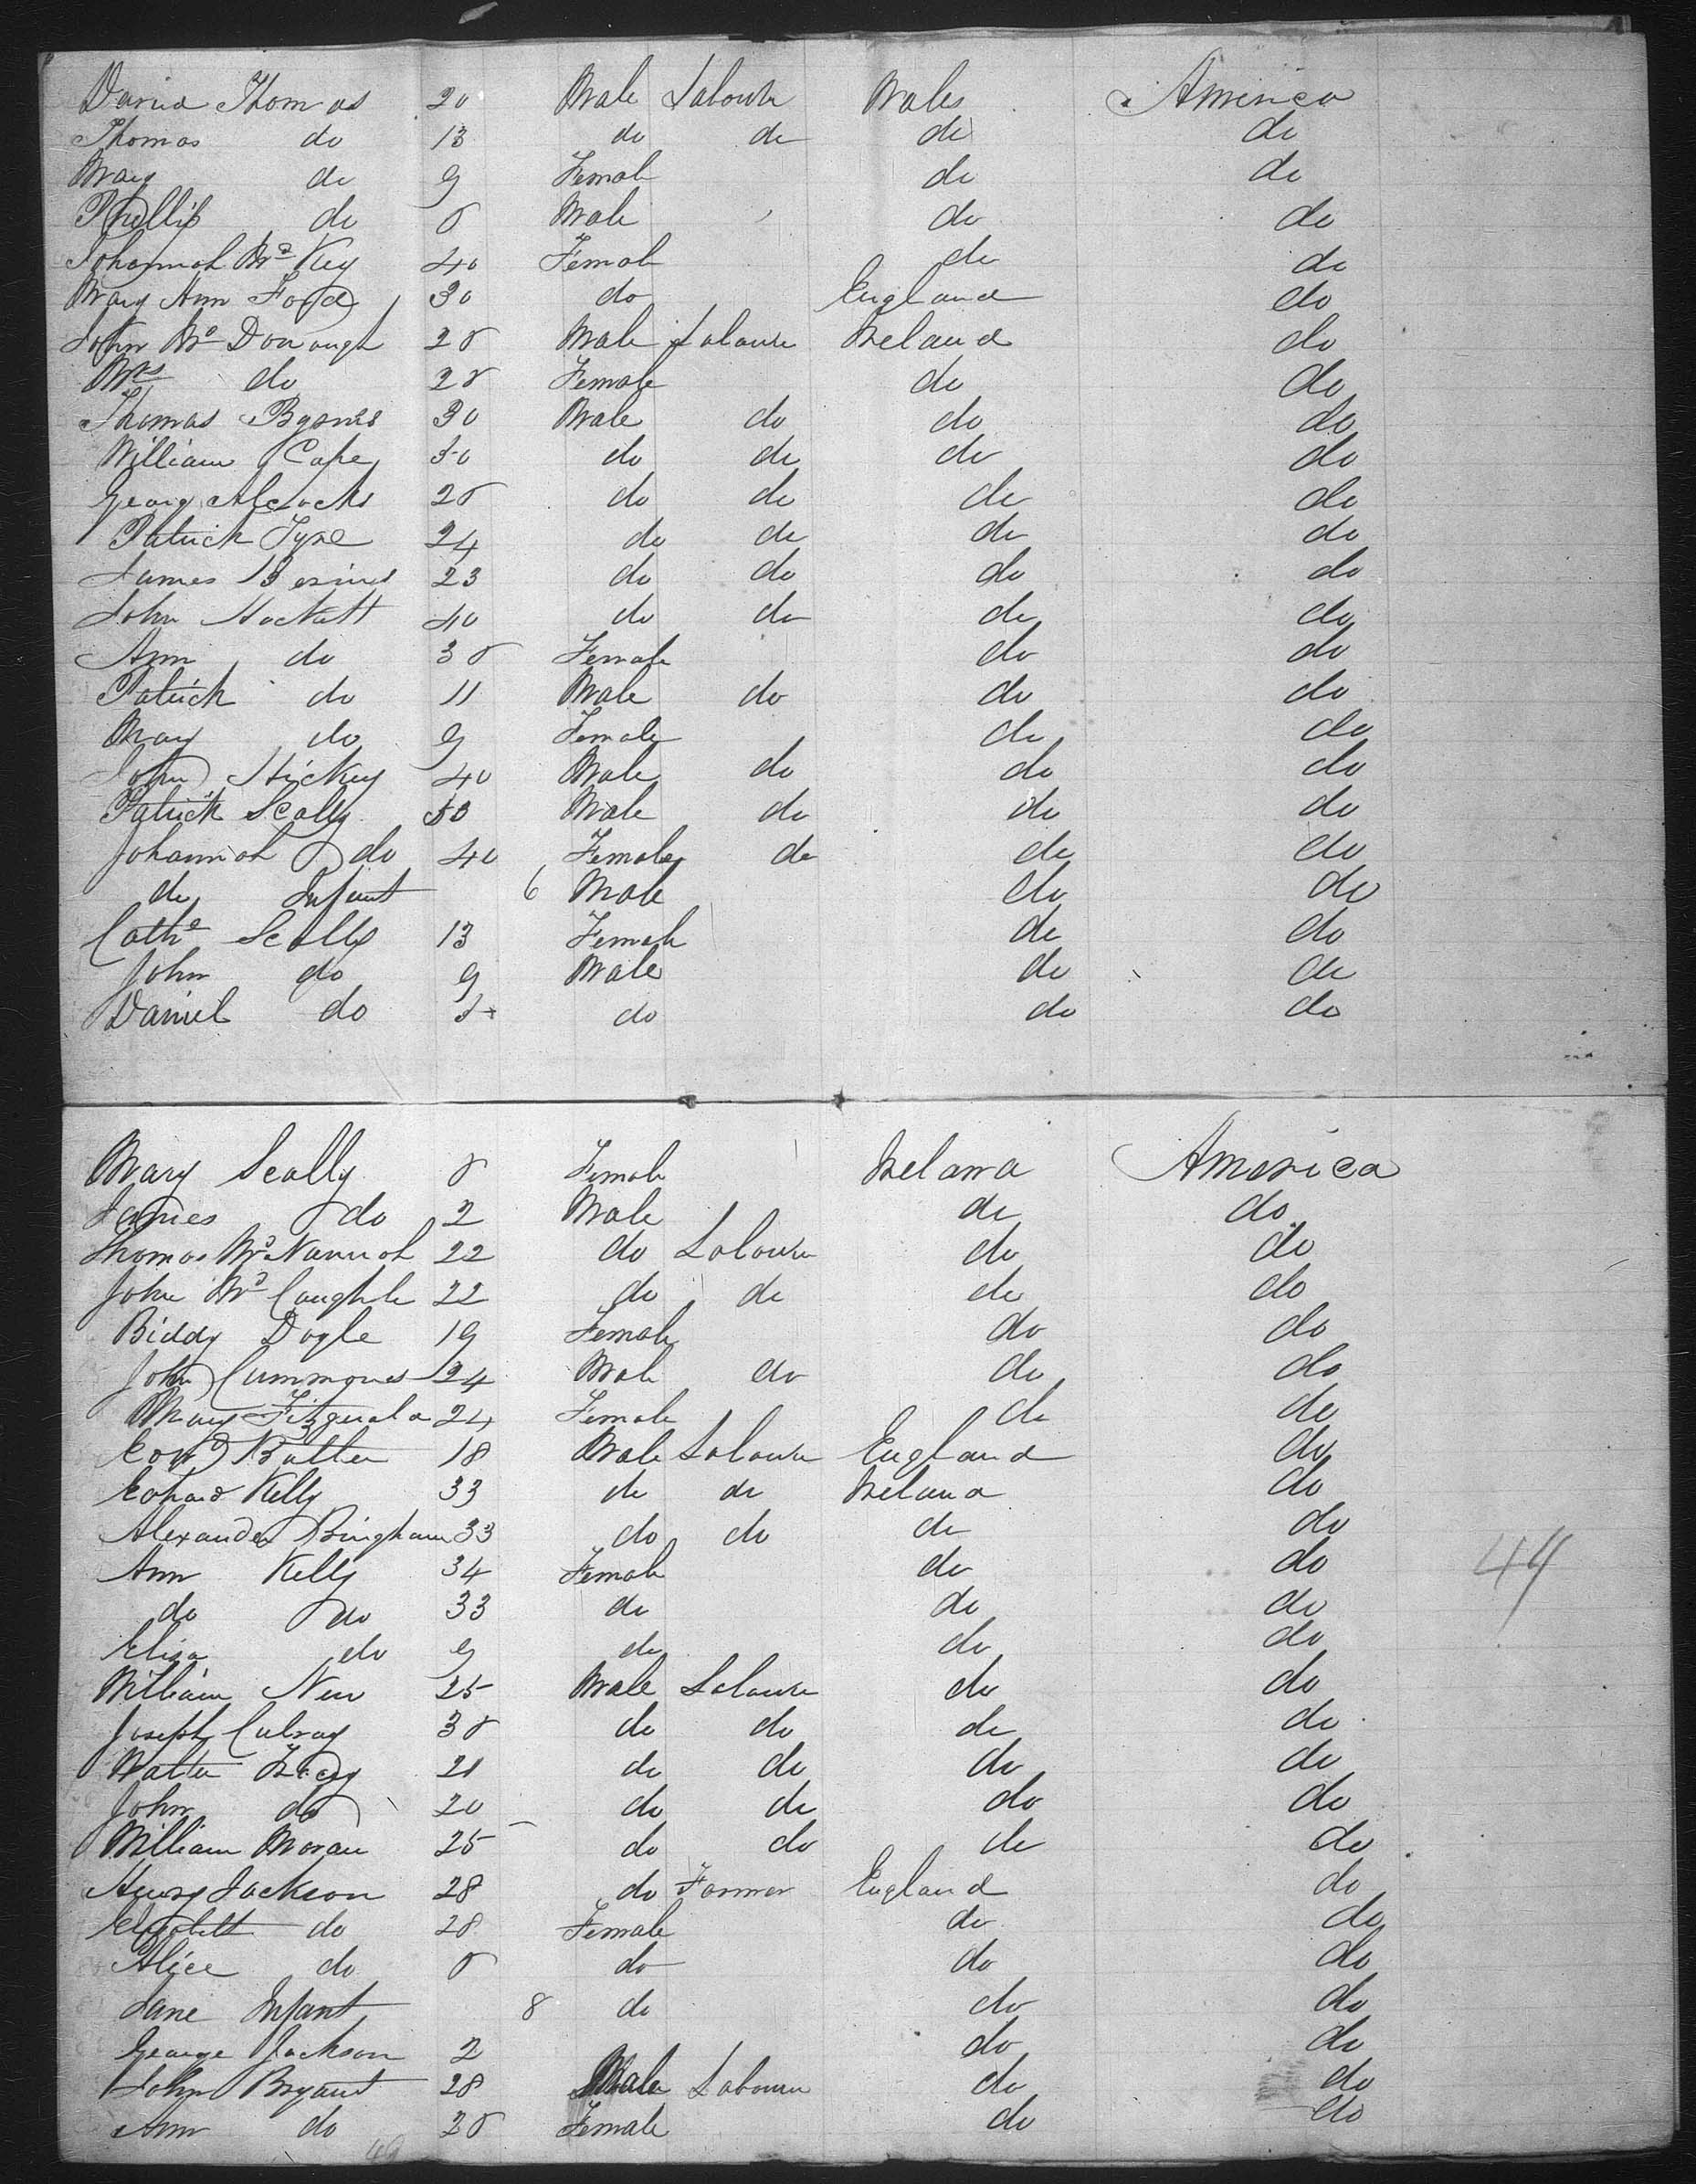 David Thomas 20 Male Labourer Wales America
Thomas do 13 do do do do
Mary do 9 Female do do
Phillip do 8 Male do do
Johannah Mc Key 40 Female do do
Mary Ann Ford 30 do England do
John Mc Donough 28 Male Labourer Ireland do
Mrs do 28 Female do do
Thomas Byrnes 30 Male do do do
William Cape 50 do do do do
Georg Alcocks 28 do do do do
Patrick 24 do do do do
James 23 do do do do
John Hackett 40 do do do do
Ann do 38 Female do do
Patrick do 11 Male do do do
Mary do 9 Female do do
John Hickey 40 Male do do do
Patrick Scally 50 Male do do do
Johannah do 40 Female do do do
do Infant 6 Male do do
Cathe Scally 13 Female do do
John do 9 Male do do
Daniel do 5 do do do
Mary Scally 8 Female Ireland America
James do 2 Male do do
Thomas Mc Nannah 22 do Labourer do do
John Mc Caughle 22 do do do do
Biddy Dogle 19 Female do do
John Cummques 24 Male do do do
Mary Fitzgerald 24 Female do do
Edwd Butler 18 Male Labourer England do
Edward Kelly 33 do do Ireland do
Alexander Bingham 33 do do do do
Ann Kelly 34 Female do do
44
do do 33 do do do
Eliza do 9 do do do
William New 25 Male Labourer do do
Joseph Culray 38 do do do do
Walter 21 do do do do
John do 20 do do do do
William Moran 25 do do do do
Henry Jackson 28 do Farmer England do
Elizabeth do 28 Female do do
Alice do 8 do do do
Jane Infant 8 do do do
George Jackson 2 do do
John Bryant 28 Male Labourer do do
Ann do 28 Female do do
49